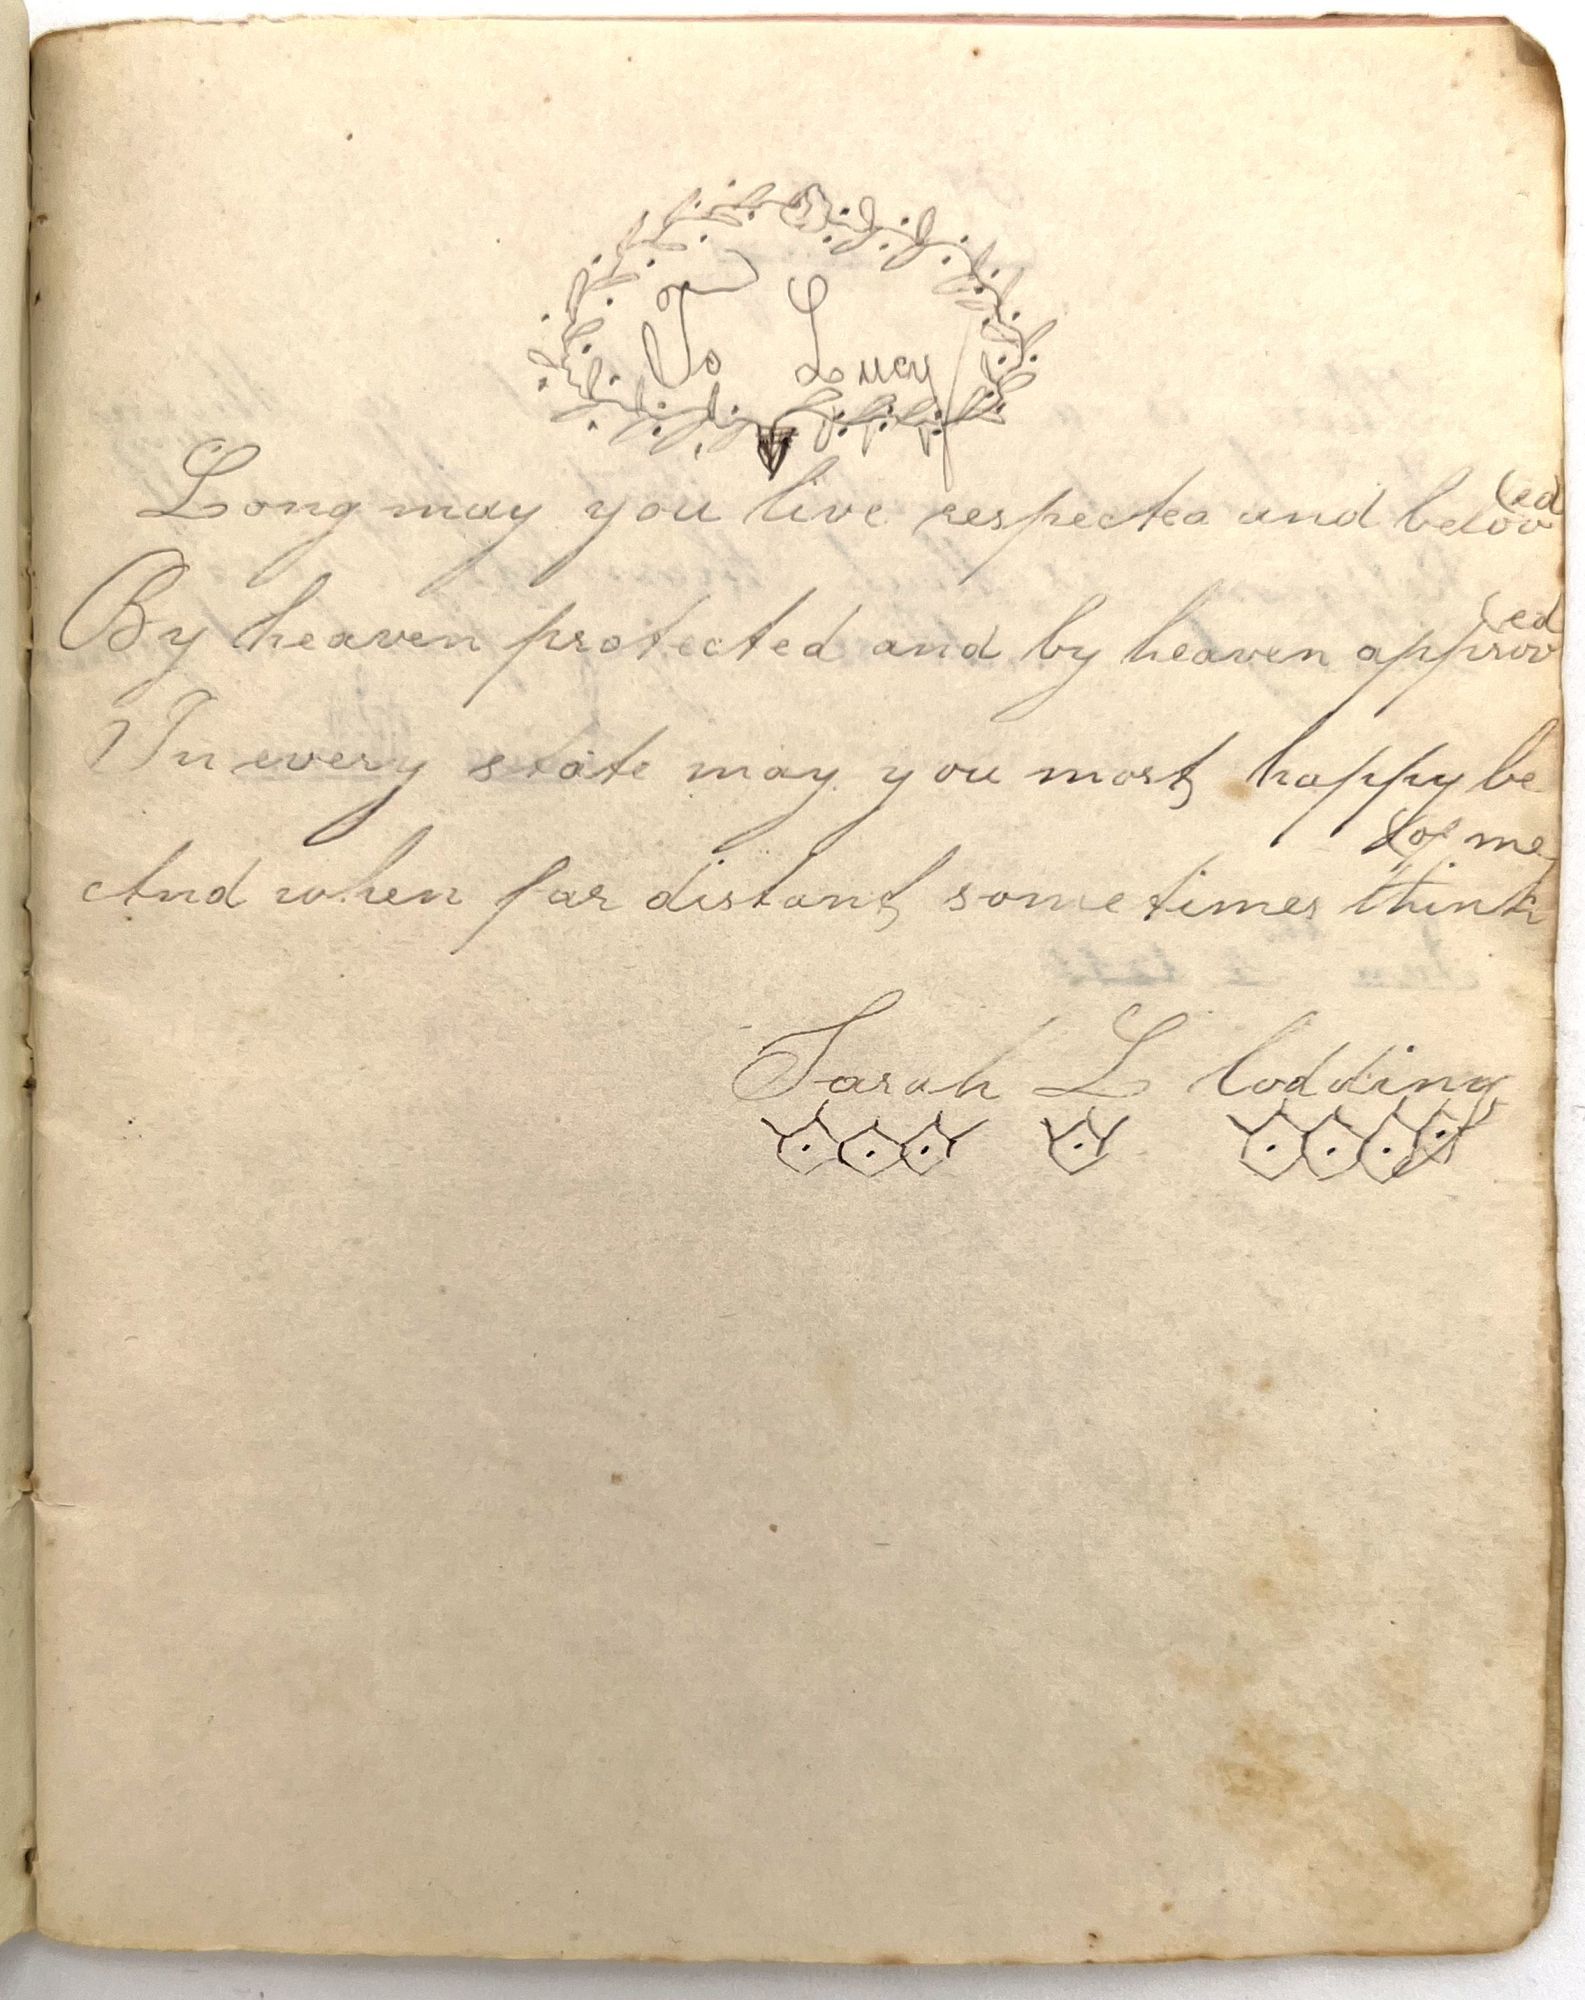 To Lucy
Long may you live respected and belov(ed
By heaven protected and by heaven approv(ed
In every state may you most happy be
And when far distant sometimes think (of me
Sarah L Codding